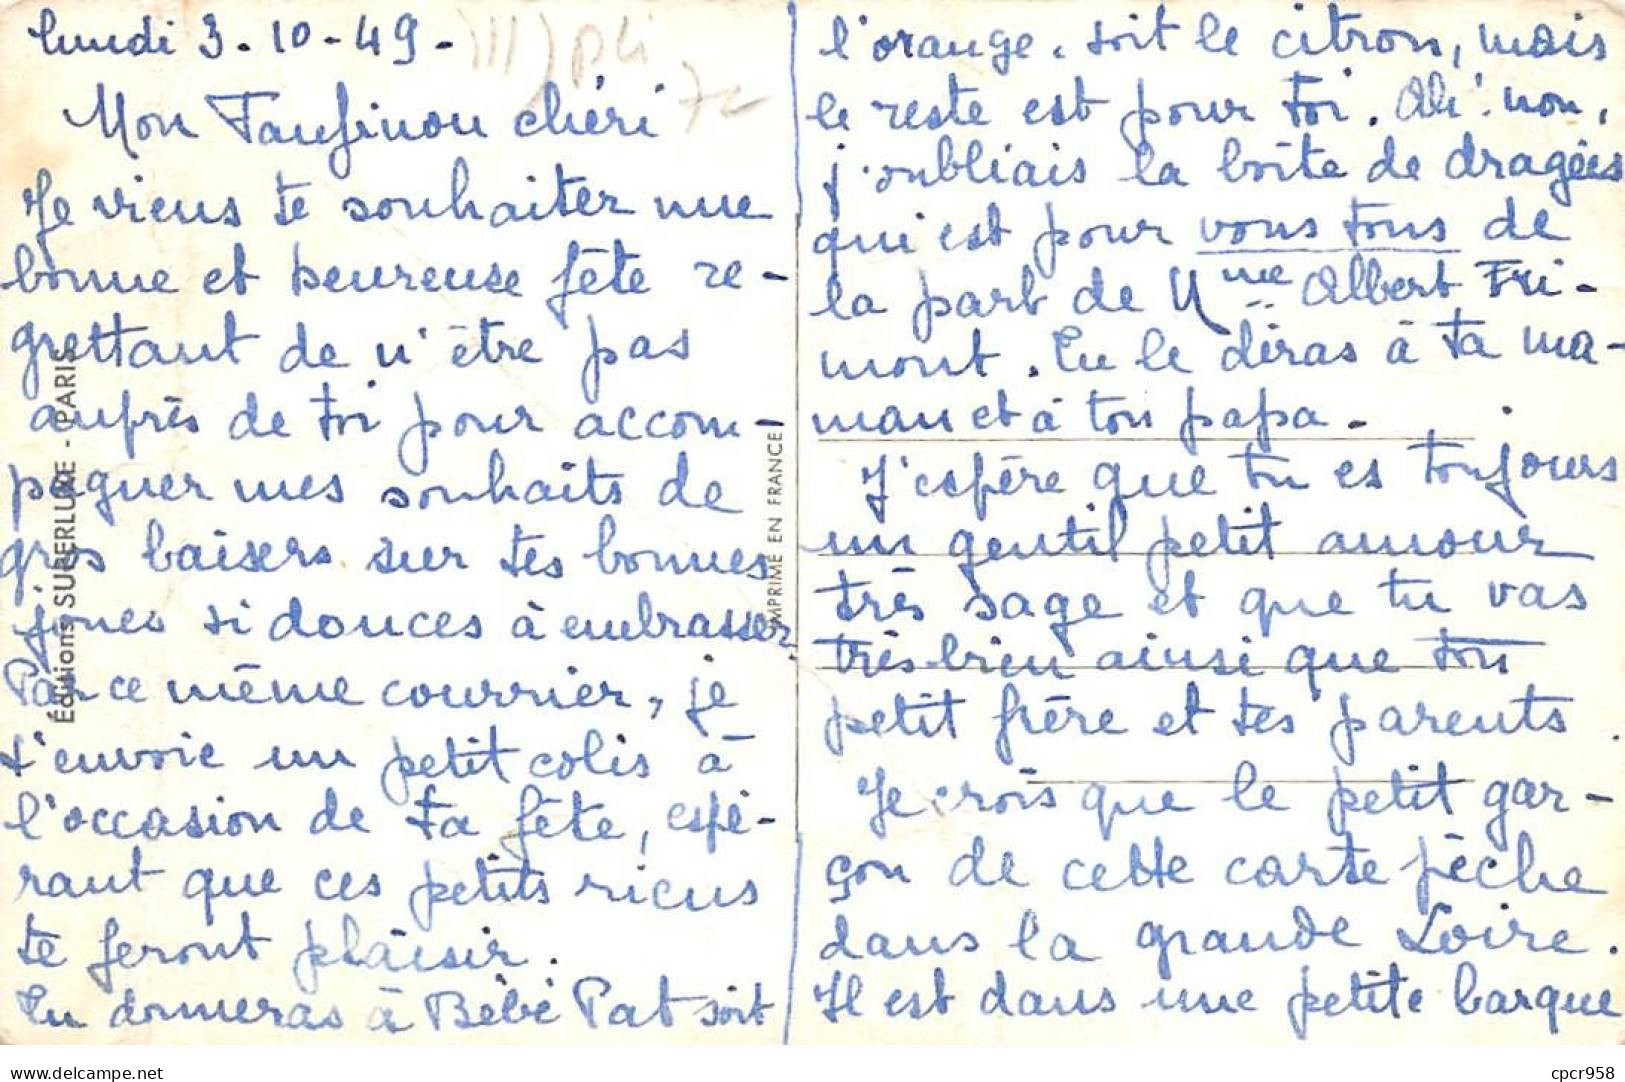 lundi 3-10-49-
Mon Fanfinou chéri
Je viens te souhaiter une
bonne et heureuse fête re-
grettant de n'être pas
auprès de toi pour accom-
pagner mes souhaits de
gros baisers sur tes bonnes
joues si douces à embrasser.
Par ce même courrier, je
t'envoie un petit colis à
l'occasion de ta fête, espé-
rant que ces petits riens
te feront plaisir.
Tu donneras à Bébé Pat soit
l'orange, soit le citron, mais
le reste est pour toi. Ah! non,
j'oubliais la boîte de dragées
qui est pour vous tous de
la part de Mme Albert Fri-
mont. Tu le diras à ta ma-
man et à ton papa.
J'espère que tu es toujours
un gentil petit amour
très sage et que tu vas
très bien ainsi que ton
petit frère et tes parents.
Je crois que le petit gar-
çon de cette carte pêche
dans la grande Loire.
Il est dans une petite barque
Éditions SUPERLUXE - PARIS
IMPRIMÉ EN FRANCE
delcampe.net
cpcr958